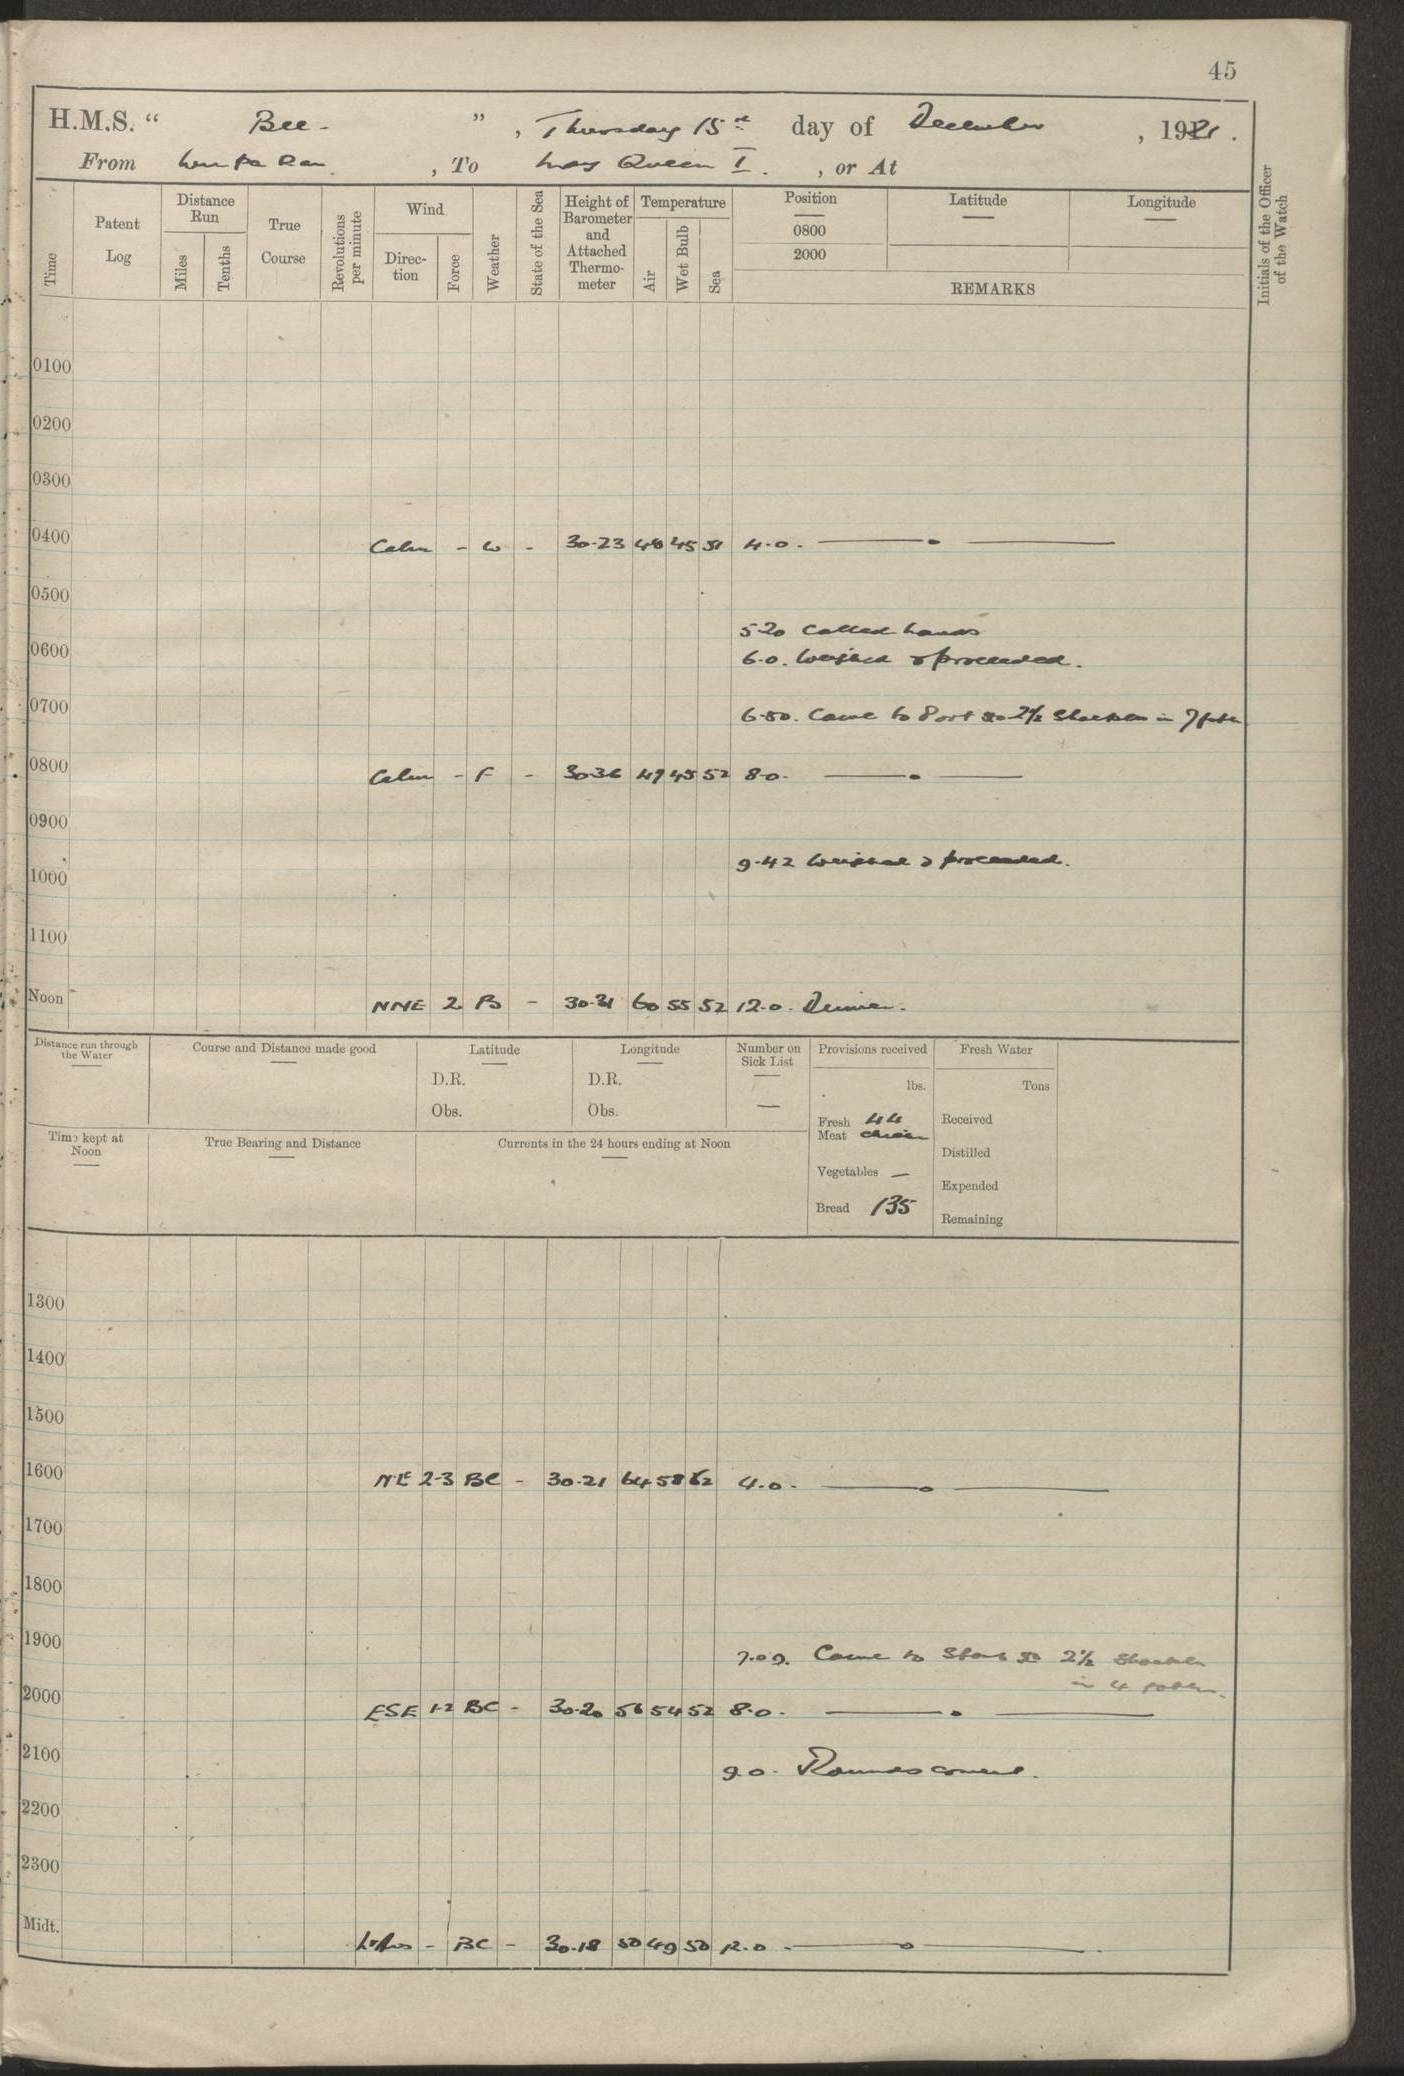 45
H.M.S. " Bee - " , Thursday 15th day of December , 1921 .
From , To May Queen I . , or At
Time
Patent Log
Distance Run
Miles
Tenths
True Course
Revolutions per minute
Wind
Direc-tion
Force
Weather
State of the Sea
Height of Barometer and Attached Thermo-meter
Temperature
Air
Wet Bulb
Sea
Position
0800
2000
Latitude
Longitude
REMARKS
Initials of the Officer of the Watch
0100
0200
0300
0400 Calm - - 30.23 48 45 51 4.0. — . —
0500
5.20 Called hands
0600 6.0. Weighed & proceeded.
0700 6.50. Came to Port 2½ Shackles in 7 fath
0800 Calm - F - 30.36 49 45 52 8.0. — . —
0900
9.42 Weighed & proceeded.
1000
1100
Noon NNE 2 B - 30.31 60 55 52 12.0. Dinner.
Distance run through the Water
Course and Distance made good
Latitude
D.R.
Obs.
Longitude
D.R.
Obs.
Number on Sick List
—
Provisions received
lbs.
Fresh Meat 44
Vegetables —
Bread 135
Fresh Water
Tons
Received
Distilled
Expended
Remaining
Time kept at Noon
True Bearing and Distance
Currents in the 24 hours ending at Noon
1300
1400
1500
1600 NE 2-3 BC - 30.21 64 58 62 4.0. — . —
1700
1800
1900
7.09. Came to Starb 2½ Shackles
in 4 fathm.
2000 ESE 1-2 BC - 30.20 56 54 52 8.0. — . —
2100
9.0. Rounds correct.
2200
2300
Midt. - BC - 30.18 50 49 50 12.0 — . —